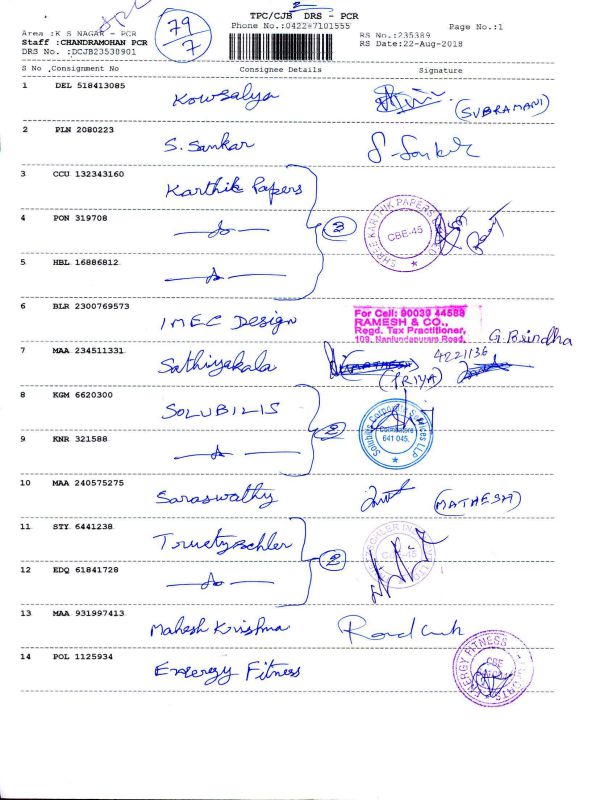 TPC/CJB DRS - PCR
Phone No.:0422*7101555
Page No.:1
79
7
Area :K S NAGAR - PCR
Staff :CHANDRAMOHAN PCR
DRS No. :DCJB23538901
RS No.:235389
RS Date:22-Aug-2018
S No Consignment No Consignee Details Signature
1 DEL 518413085 Kowsalya (SUBRAMANI)
2 PLN 2080223 S. Sankar S-Sankar
3 CCU 132343160 Karthik Papers
SHREE KARTHIK PAPERS
CBE-45
4 PON 319708 —do— 3
5 HBL 16886812 —do—
6 BLR 2300769573 IMEC Design
For Cell: 90039 44588
RAMESH & CO.,
Regd. Tax Practitioner,
109, Nanjundapuram Road,
G. Brindha
4221136
7 MAA 234511331 Sathiyakala (PRIYA)
8 KGM 6620300 SOLUBILIS
Solubilis Corporate Services LLP
Coimbatore
641 045.
9 KNR 321588 —do— 2
10 MAA 240575275 Saraswathy (MATHESH)
11 STY 6441238
12 EDQ 61841728 —do— 2
13 MAA 931997413 Mahesh Krishna
14 POL 1125934 Energy Fitness
ENERGY FITNESS
CBE